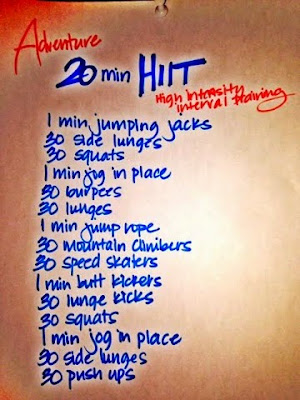 Adventure
20 min HIIT
High intensity
interval training
1 min jumping jacks
30 side lunges
30 squats
1 min jog in place
30 burpees
30 lunges
1 min jump rope
30 mountain climbers
30 speed skaters
1 min butt kickers
30 lunge kicks
30 squats
1 min jog in place
30 side lunges
30 push ups